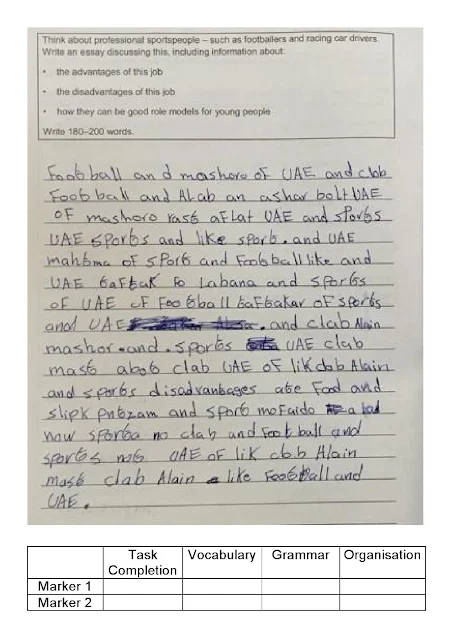 Think about professional sportspeople – such as footballers and racing car drivers.
Write an essay discussing this, including information about:
• the advantages of this job
• the disadvantages of this job
• how they can be good role models for young people
Write 180–200 words.
Football and mashoro of UAE and clob
Football and Alab an ashar bolt UAE
OF mashoro rast aflat UAE and sports
UAE sports and like sport. and UAE
mahtma of sport and Football like and
UAE taftak to Labana and sports
of UAE of Football taftakar of sports
and UAE . and clab Alain
mashor. and. sports UAE clab
mast abot clab UAE of lik clob Alain
and sports disadvantages ate Food and
slipk pntzam and sport mofaido a lad
now sporta no clab and Foot ball and
sports not UAE of lik clob Alain
mast clab Alain like Football and
UAE.
Task Completion Vocabulary Grammar Organisation
Marker 1
Marker 2